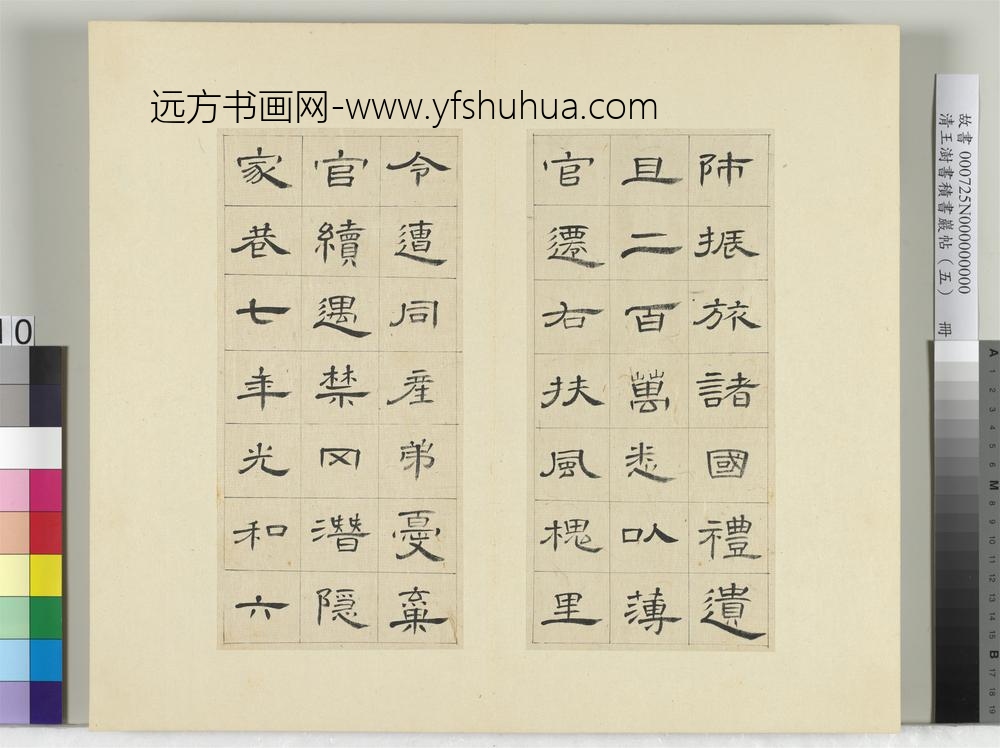 远方书画网-www.yfshuhua.com
師振旅諸國禮遺
且二百萬悉以薄
官遷右扶風槐里
令遭同産弟憂棄
官續遇禁冈潛隱
家巷七年光和六
故書 000725N000000000
清王澍書積書巖帖（五） 冊
10
A 1 2 3 4 5 6 M 8 9 10 11 12 13 14 15 B 17 18 19